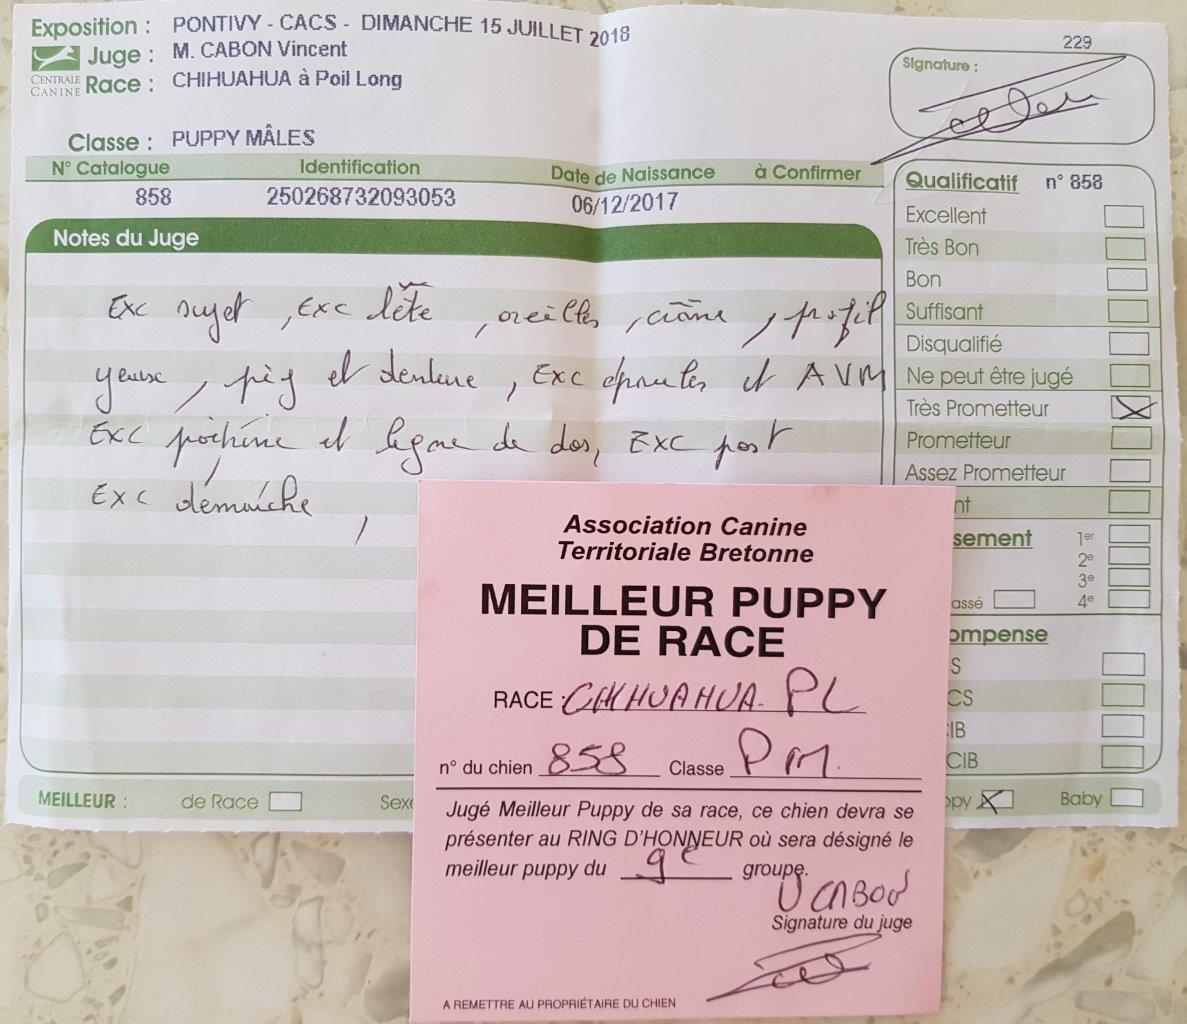 Exposition : PONTIVY - CACS - DIMANCHE 15 JUILLET 2018
Juge : M. CABON Vincent
CENTRALE CANINE
Race : CHIHUAHUA à Poil Long
Classe : PUPPY MÂLES
229
Signature :
N° Catalogue Identification Date de Naissance à Confirmer
858 250268732093053 06/12/2017
Notes du Juge
Exc sujet, Exc tête, oreilles, crâne, profil
yeux, pig et denture, Exc épaules et AVM
Exc poitrine et ligne de dos, Exc post
Exc démarche,
Qualificatif n° 858
Excellent
Très Bon
Bon
Suffisant
Disqualifié
Ne peut être jugé
Très Prometteur
Prometteur
Assez Prometteur
nt
sement 1er
2e
3e
assé 4e
ompense
S
CS
IB
CIB
MEILLEUR : de Race Sexe
py Baby
Association Canine
Territoriale Bretonne
MEILLEUR PUPPY
DE RACE
RACE : CHIHUAHUA PL
n° du chien 858 Classe PM.
Jugé Meilleur Puppy de sa race, ce chien devra se
présenter au RING D'HONNEUR où sera désigné le
meilleur puppy du 9e groupe.
V CABON
Signature du juge
A REMETTRE AU PROPRIÉTAIRE DU CHIEN